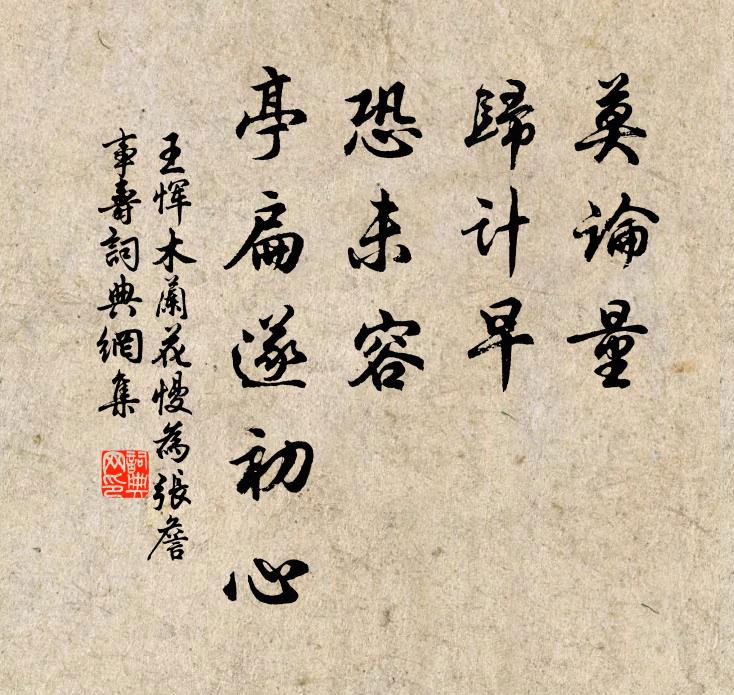 莫論量
歸计早
恐未容
亭扁遂初心
王惲木蘭花慢為張詹
事壽詞典網集
詞典
网印